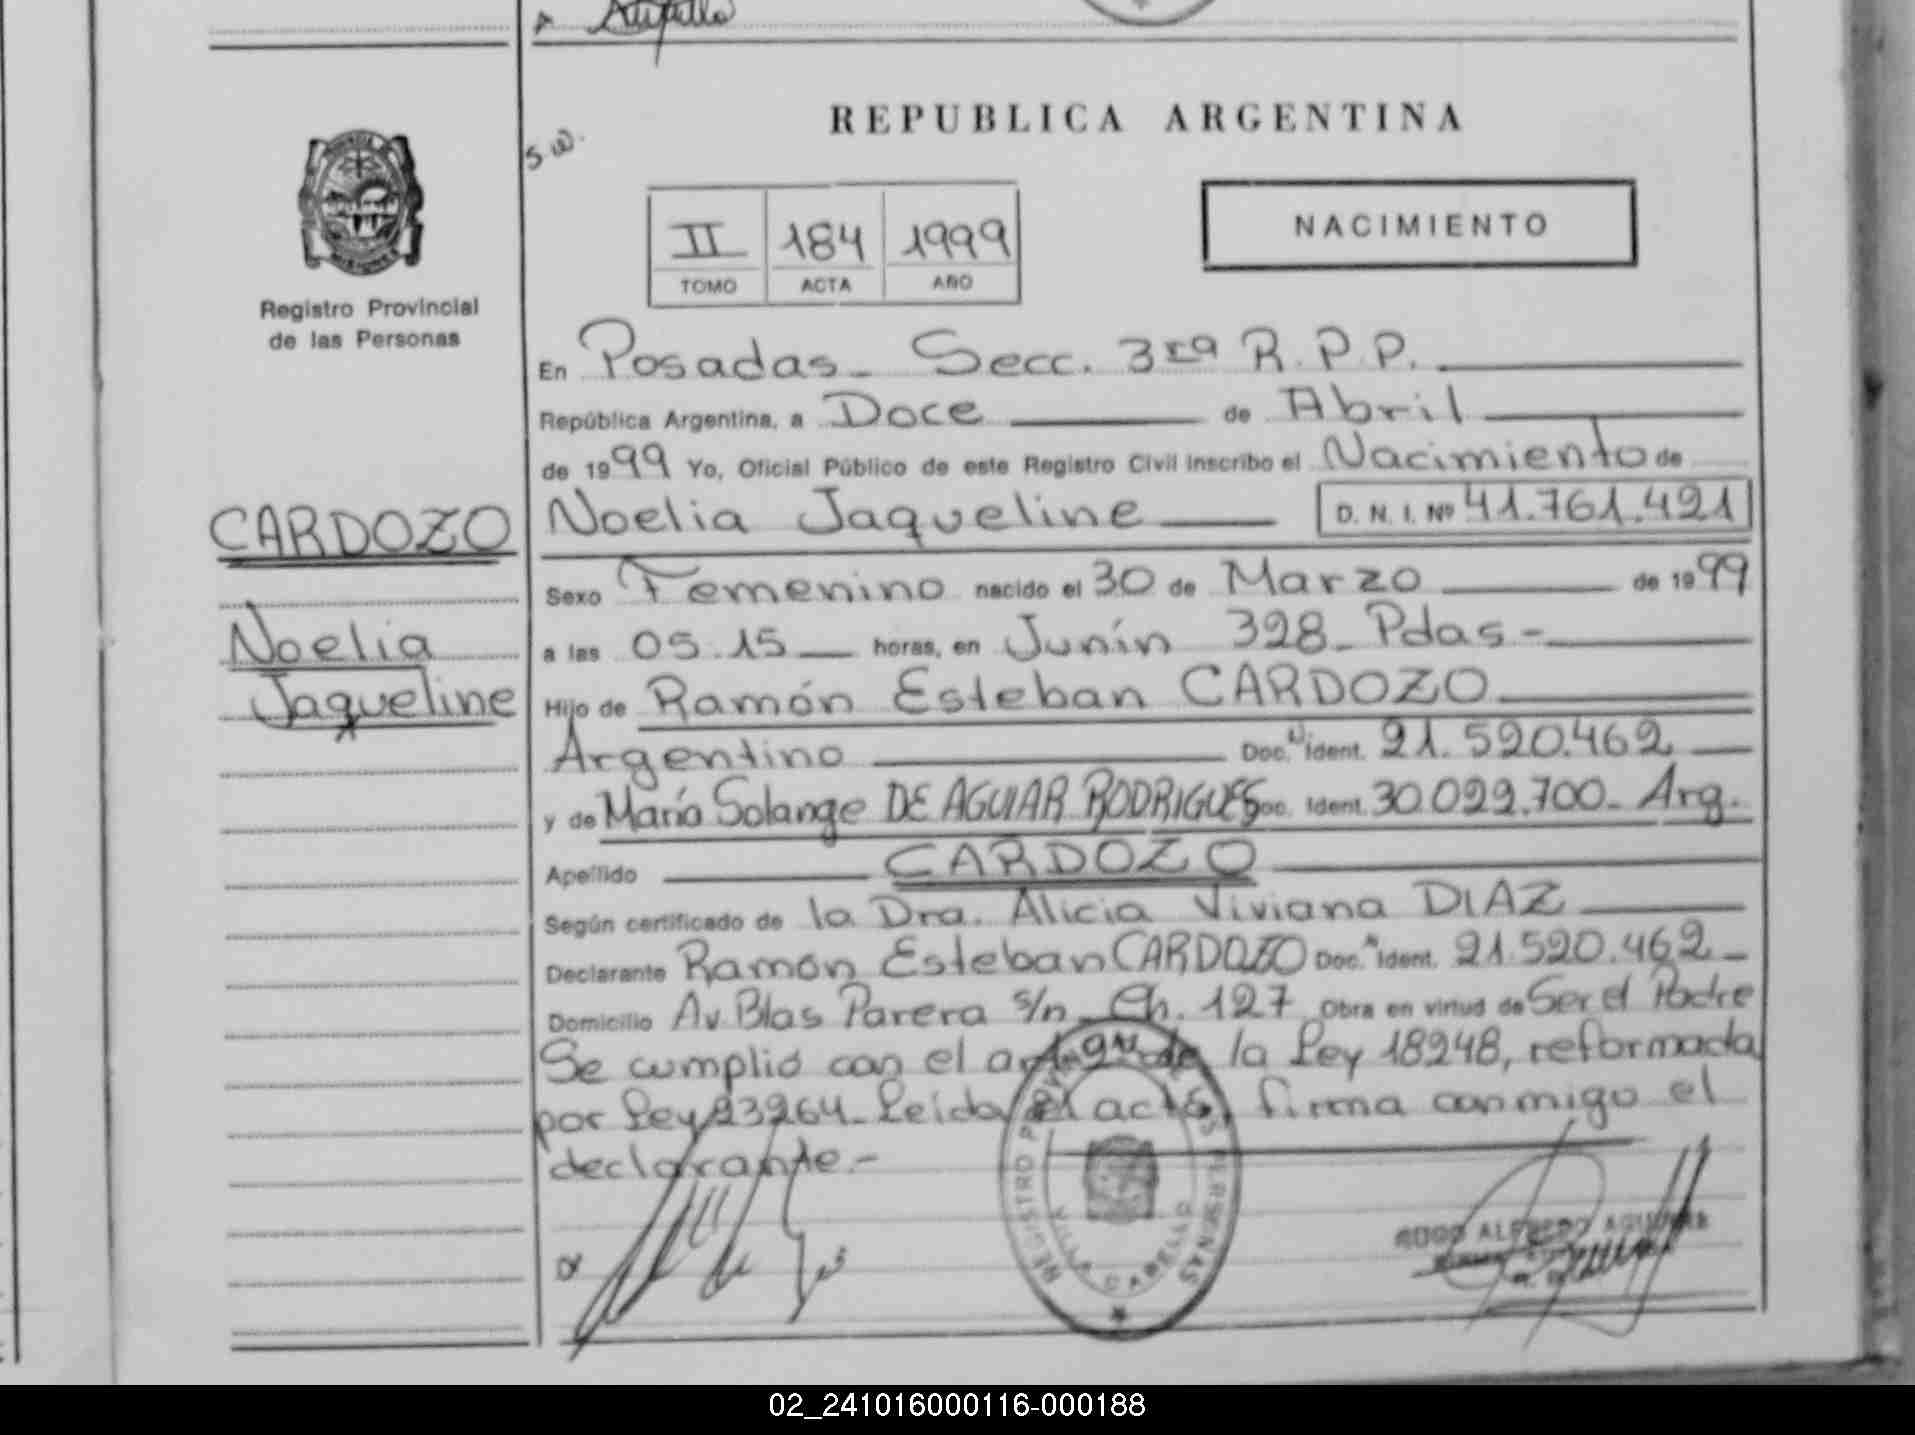 REPUBLICA ARGENTINA
s.w.
NACIMIENTO
II 184 1999
TOMO ACTA AÑO
Registro Provincial
de las Personas
En Posadas - Secc. 3ra R.P.P.
República Argentina, a Doce de Abril
de 1999 Yo, Oficial Público de este Registro Civil inscribo el Nacimiento de
CARDOZO
Noelia Jaqueline D. N. I. Nº 41.761.421
Sexo Femenino nacido el 30 de Marzo de 1999
Noelia
a las 05.15 horas, en Junín 328 - Pdas -
Jaqueline
Hijo de Ramón Esteban CARDOZO
Argentino Doc. Ident. 21.520.462
y de María Solange DE AGUIAR RODRIGUES Doc. Ident. 30.022.700 - Arg.
Apellido CARDOZO
Según certificado de la Dra. Alicia Viviana DIAZ
Declarante Ramón Esteban CARDOZO Doc. Ident. 21.520.462 -
Domicilio Av. Blas Parera s/n - Ch. 127 Obra en virtud de Ser el Padre
Se cumplió con el art. de la Ley 18248, reformada
por Ley 23264 - Leida el acta, firma conmigo el
declarante.-
REGISTRO PROVINCIAL DE LAS PERSONAS
VILLA CABELLO
ALFREDO
02_241016000116-000188